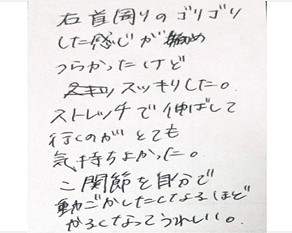 右首周りのゴリゴリ
した感じが
つらかったけど
スッキリした。
ストレッチで伸ばして
行くのがとても
気持ちよかった。
こ関節を自分で
動かしたくなるほど
かるくなってうれしい。